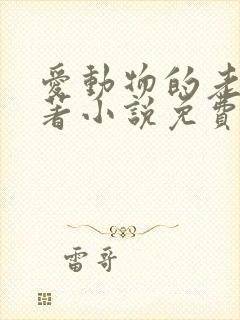 愛動物的
著小說免費
雷哥